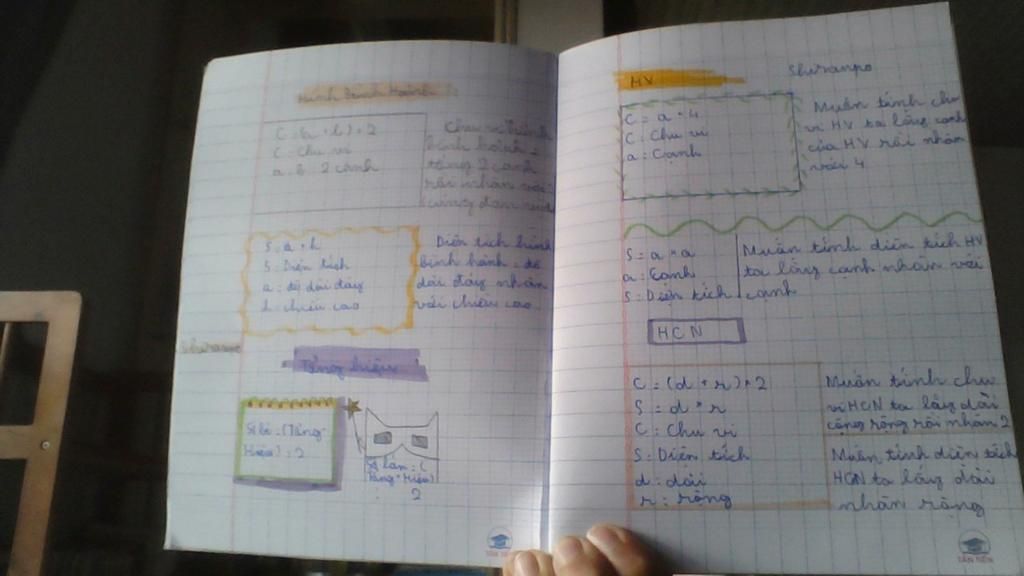 Hình Bình Hành
C = (a + b) × 2
C: Chu vi
a, b: 2 cạnh
Chu vi hình
bình hành =
tổng 2 cạnh
rồi nhân với 2
S = a × h
S: Diện tích
a: độ dài đáy
h: chiều cao
Diện tích hình
bình hành = độ
dài đáy nhân
với chiều cao
Shiranpo
Tổng hiệu
Số bé = (Tổng -
Hiệu) : 2
Số lớn = (
Tổng + Hiệu)
: 2
TÂN TIẾN
HV
Shiranpo
C = a × 4
C: Chu vi
a: Cạnh
Muốn tính chu
vi HV ta lấy cạnh
của HV rồi nhân
với 4
S = a × a
a: Cạnh
S: Diện tích
Muốn tính diện tích HV
ta lấy cạnh nhân với
cạnh
HCN
C = (d + r) × 2
S = d × r
C: Chu vi
S: Diện tích
d: dài
r: rộng
Muốn tính chu
vi HCN ta lấy dài
cộng rộng rồi nhân 2
Muốn tính diện tích
HCN ta lấy dài
nhân rộng
TÂN TIẾN